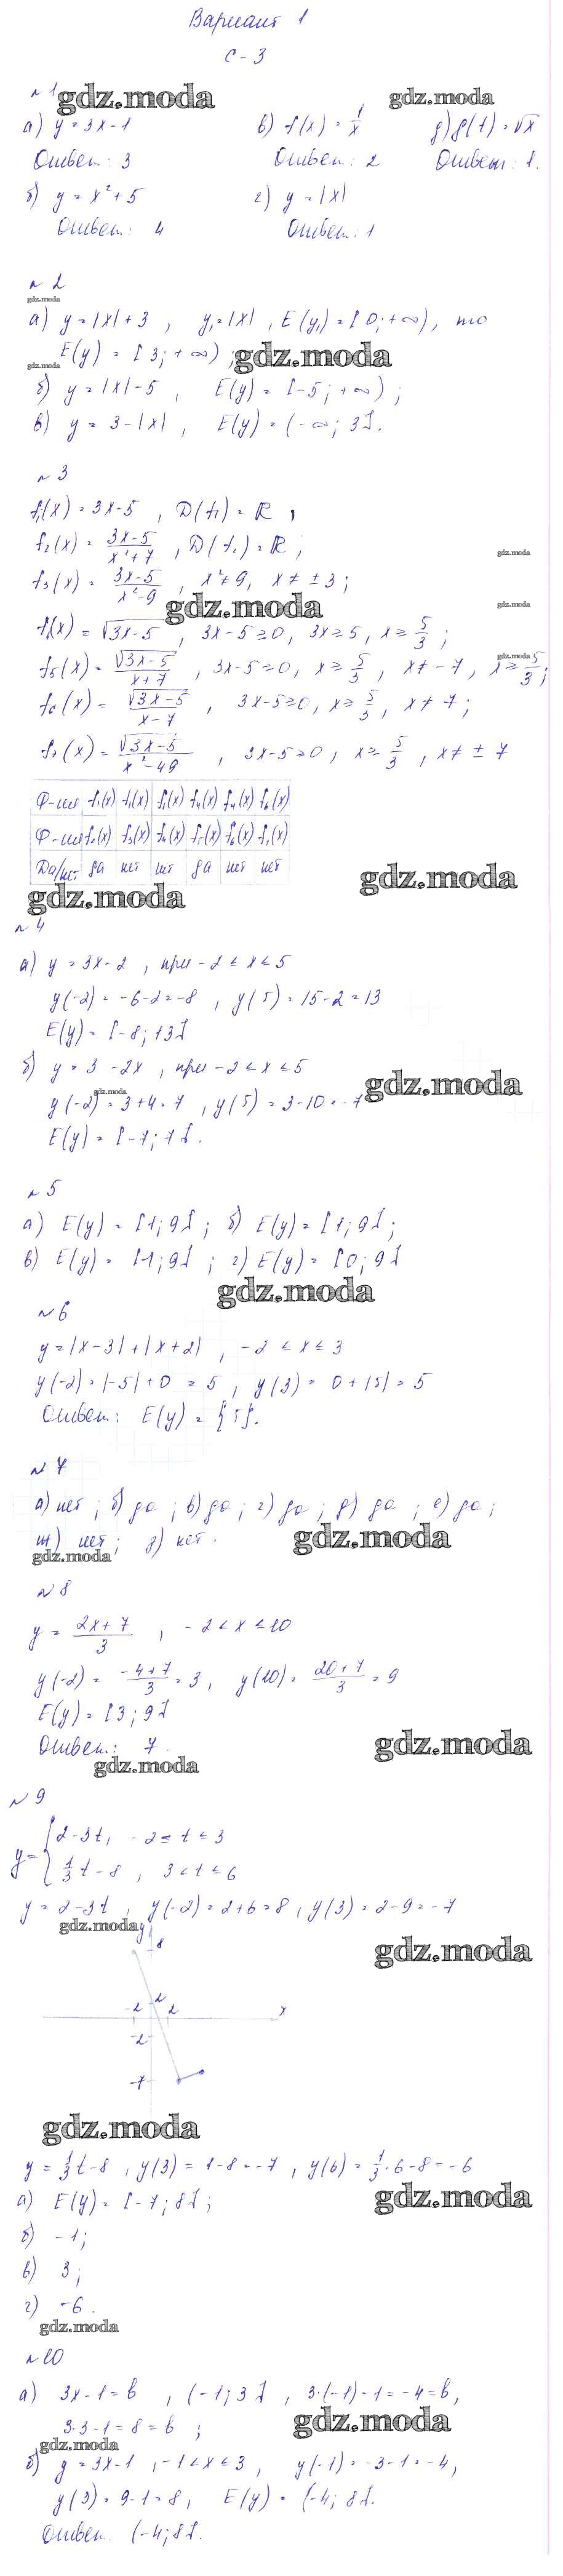 Вариант 1
С-3
№1 gdz.moda gdz.moda
а) y = 3x-1 в) f(x) = 1/x д) f(t) = √x
Ответ: 3 Ответ: 2 Ответ: 1.
б) y = x²+5 г) y = |x|
Ответ: 4 Ответ: 1
№2
gdz.moda
а) y = |x| + 3 , y₁ = |x| , E(y₁) = [0; +∞), то
E(y) = [3; +∞) ; gdz.moda
gdz.moda
б) y = |x| - 5 , E(y) = [-5; +∞) ;
в) y = 3 - |x| , E(y) = (-∞; 3].
№3
f₁(x) = 3x-5 , D(f₁) = R ,
f₂(x) = (3x-5)/(x²+7) , D(f₂) = R ;
gdz.moda
f₃(x) = (3x-5)/(x²-9) , x² ≠ 9, x ≠ ±3 ;
gdz.moda gdz.moda
f₄(x) = √(3x-5) , 3x-5≥0, 3x≥5, x≥5/3 ;
gdz.moda
f₅(x) = √(3x-5)/(x+7) , 3x-5≥0, x≥5/3, x≠-7, x≥5/3;
f₆(x) = √(3x-5)/(x-7) , 3x-5≥0, x≥5/3, x≠7;
f₇(x) = √(3x-5)/(x²-49) , 3x-5≥0, x≥5/3, x≠±7
Ф-ия f₁(x) f₁(x) f₁(x) f₄(x) f₄(x) f₆(x)
Ф-ия f₂(x) f₃(x) f₄(x) f₅(x) f₆(x) f₇(x)
Да/нет да нет нет да нет нет
gdz.moda gdz.moda
№4
а) y = 3x-2 , при -2 ≤ x ≤ 5
y(-2) = -6-2=-8 , y(5) = 15-2=13
E(y) = [-8; 13]
б) y = 3-2x , при -2 ≤ x ≤ 5
gdz.moda gdz.moda
y(-2) = 3+4=7 , y(5) = 3-10=-7
E(y) = [-7; 7].
№5
а) E(y) = [1; 9]; б) E(y) = [1; 9];
в) E(y) = [-1; 9] ; г) E(y) = [0; 9]
gdz.moda
№6
y = |x-3| + |x+2| , -2 ≤ x ≤ 3
y(-2) = |-5| + 0 = 5 , y(3) = 0+|5| = 5
Ответ: E(y) = {5}.
№7
а) нет ; б) да ; в) да ; г) да ; д) да ; е) да ;
ж) нет ; з) нет . gdz.moda
gdz.moda
№8
y = (2x+7)/3 , -2 ≤ x ≤ 10
y(-2) = (-4+7)/3 = 3 , y(10) = (20+7)/3 = 9
E(y) = [3; 9]
Ответ: 7. gdz.moda
gdz.moda
№9
y = { 2-3t, -2 ≤ t ≤ 3
1/3 t - 8 , 3 < t ≤ 6
y = 2-3t , y(-2) = 2+6 = 8 , y(3) = 2-9 = -7
gdz.moda y
8 gdz.moda
-2 2 2 x
-2
-7
gdz.moda
y = 1/3 t - 8 , y(3) = 1-8 = -7 , y(6) = 1/3 · 6-8 = -6
а) E(y) = [-7; 8]; gdz.moda
б) -1;
в) 3;
г) -6.
gdz.moda
№10
а) 3x-1=b , (-1; 3] , 3·(-1)-1=-4=b,
3·3-1=8=b ; gdz.moda
gdz.moda
б) y = 3x-1 , -1 < x ≤ 3 , y(-1) = -3-1=-4,
y(3) = 9-1=8 , E(y) = (-4; 8].
Ответ. (-4; 8].